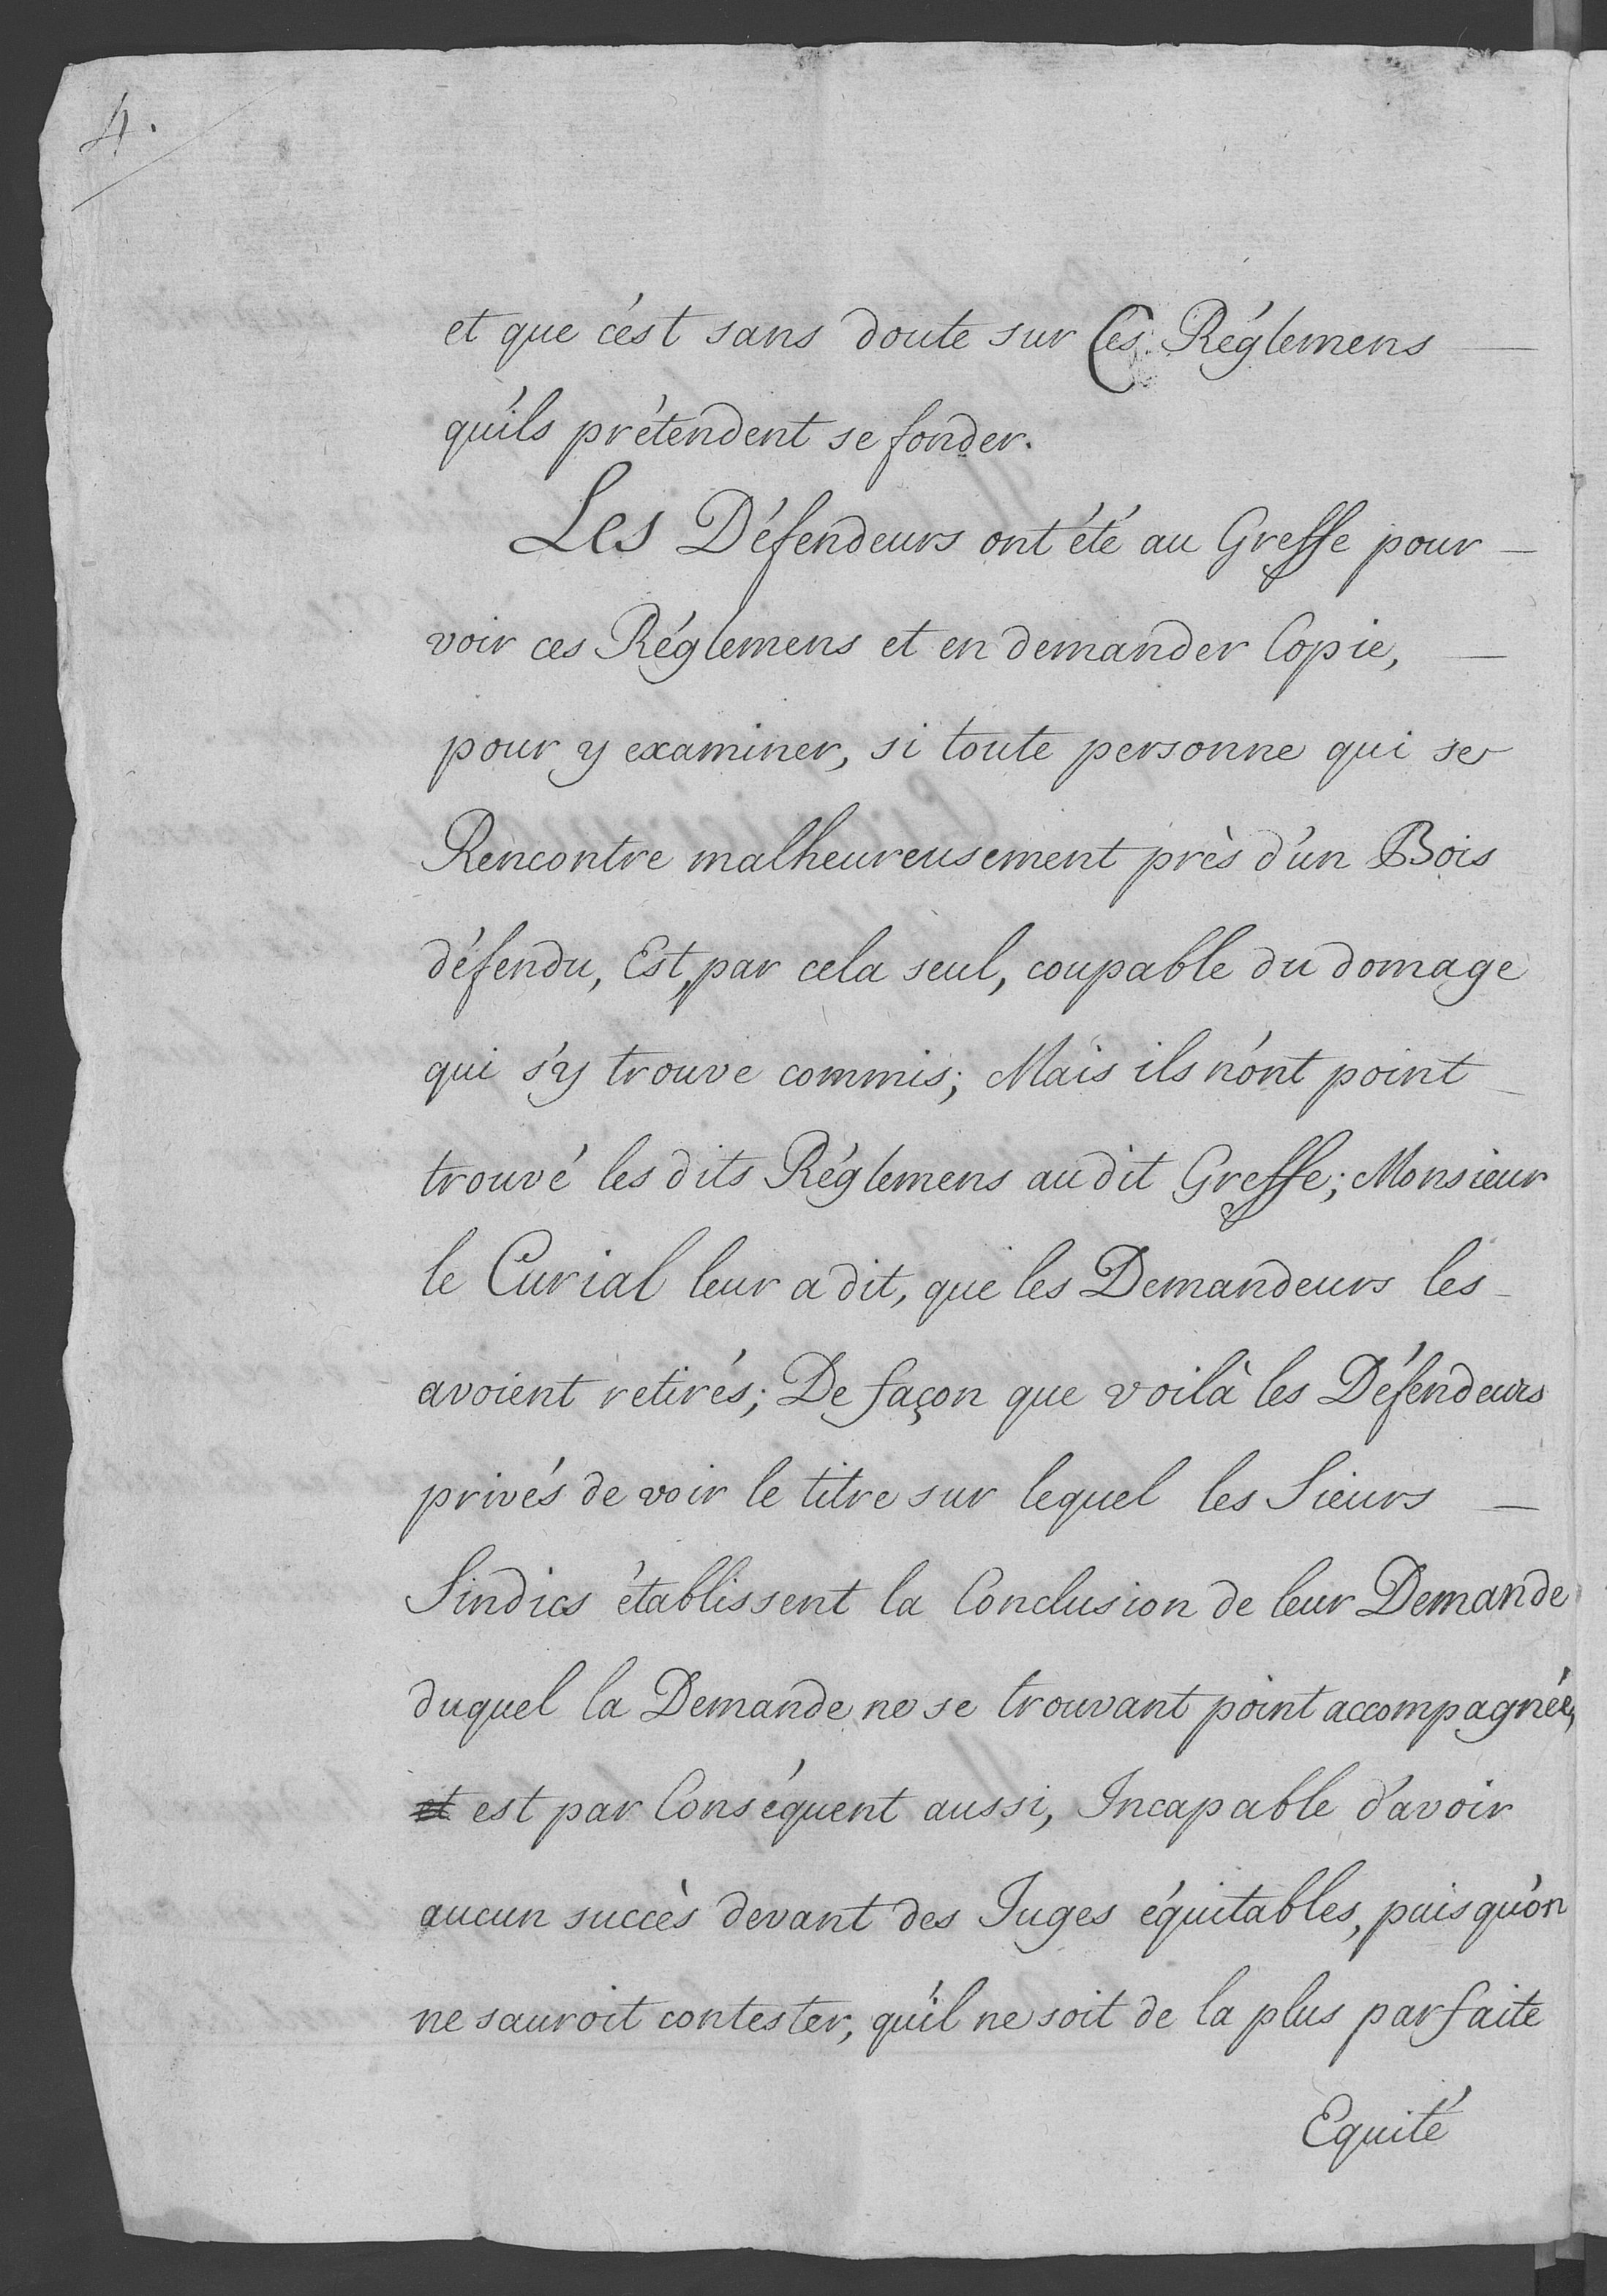 4.
et que c'est sans doute sur Ces Réglemens —
qu'ils prétendent se fonder.
Les Défendeurs ont été au Greffe pour —
voir ces Réglemens et en demander Copie, —
pour y examiner, si toute personne qui se
Rencontre malheureusement près d'un Bois
défendu, Est, par cela seul, coupable du domage
qui s'y trouve commis; Mais ils n'ont point —
trouvé les dits Réglemens au dit Greffe; Monsieur
le Curial leur a dit, que les Demandeurs les –
avoient retirés; De façon que voilà les Défendeurs
privés de voir le titre sur lequel les Sieurs —
Sindics établissent la Conclusion de leur Demande
duquel la Demande ne se trouvant point accompagnée,
et est par Conséquent aussi, Incapable d'avoir
aucun succès devant des Juges équitables, puisqu'on
ne sauroit contester, qu'il ne soit de la plus parfaite
Equité